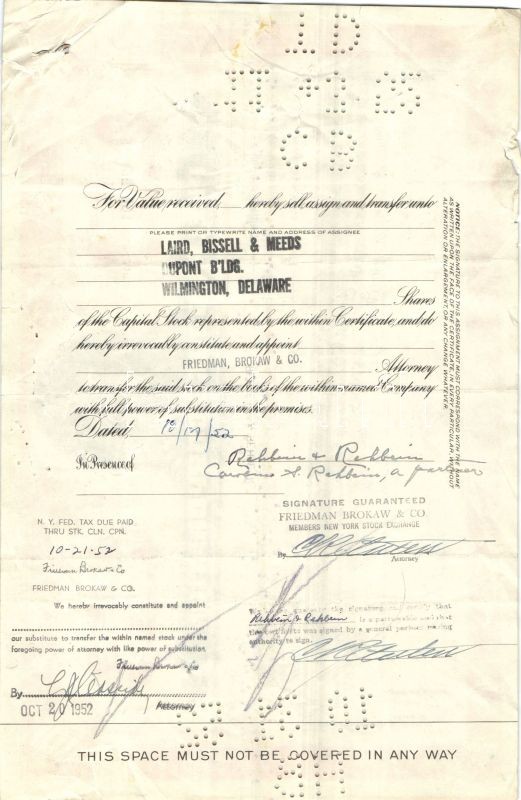 For Value received, hereby sell, assign and transfer unto
PLEASE PRINT OR TYPEWRITE NAME AND ADDRESS OF ASSIGNEE
LAIRD, BISSELL & MEEDS
DUPONT B'LDG.
WILMINGTON, DELAWARE
Shares
of the Capital Stock represented by the within Certificate, and do
hereby irrevocably constitute and appoint
FRIEDMAN, BROKAW & CO.
Attorney
to transfer the said stock on the books of the within-named Company
with full power of substitution in the premises.
Dated, 10/17/52
In Presence of
Rehbein & Rehbein
Caroline S. Rehbein, a partner
NOTICE: THE SIGNATURE TO THIS ASSIGNMENT MUST CORRESPOND WITH THE NAME
AS WRITTEN UPON THE FACE OF THE CERTIFICATE, IN EVERY PARTICULAR, WITHOUT
ALTERATION OR ENLARGEMENT, OR ANY CHANGE WHATEVER.
SIGNATURE GUARANTEED
FRIEDMAN BROKAW & CO.
MEMBERS NEW YORK STOCK EXCHANGE
By
Attorney
N. Y. FED. TAX DUE PAID
THRU STK. CLN. CPN.
10-21-52
Friedman Brokaw & Co
FRIEDMAN BROKAW & CO.
We hereby irrevocably constitute and appoint
our substitute to transfer the within named stock under the
foregoing power of attorney with like power of substitution.
Friedman Brokaw & Co
By
Attorney
OCT 20 1952
that
Rehbein & Rehbein is a partnership and that
was signed by a general partner having
authority to sign.
THIS SPACE MUST NOT BE COVERED IN ANY WAY